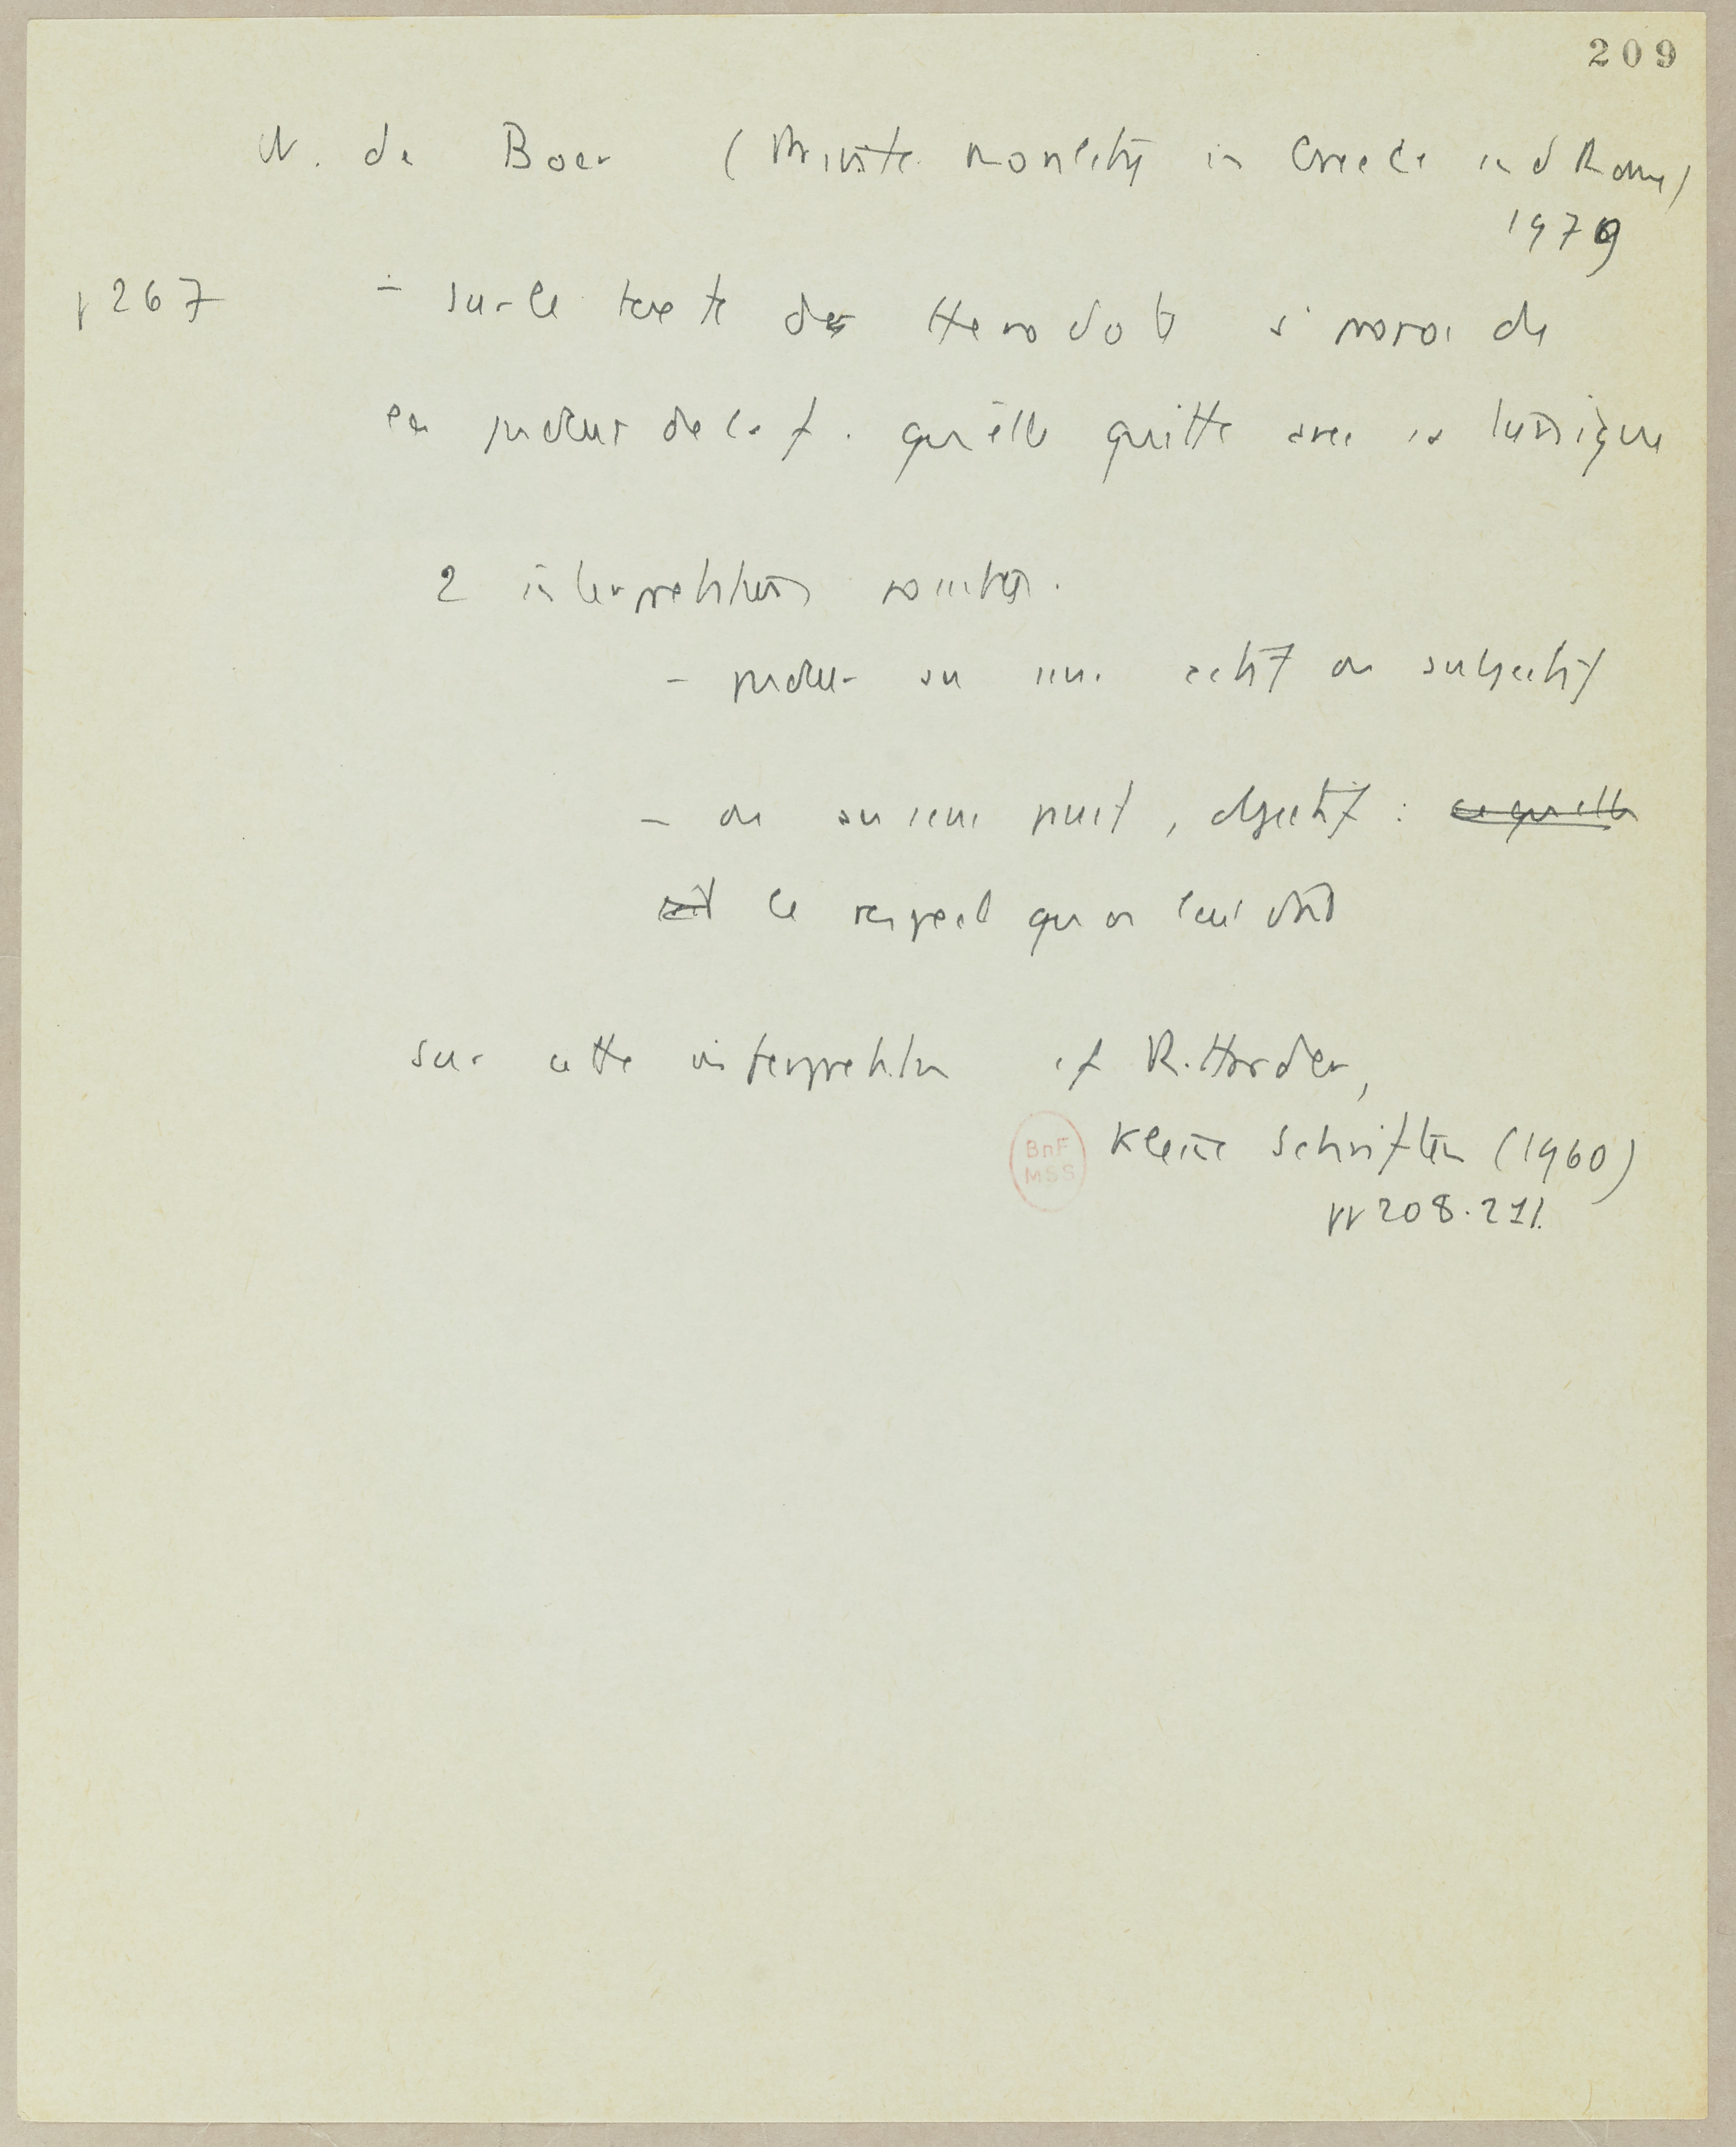 209
W. de Boer (Private morality in Greece and Rome)
1979
p 267 - sur le texte de Herodote à propos de
la pudeur de la f. qu'elle quitte avec sa tunique
2 interpretations possibles.
- pudeur au sens actif ou subjectif
- ou au sens passif, objectif : ce qu'elle
soit le respect qu'on leur doit
sur cette interpretation cf R. Harder,
Kleine Schriften (1960)
pp 208.211.
BnF
MSS